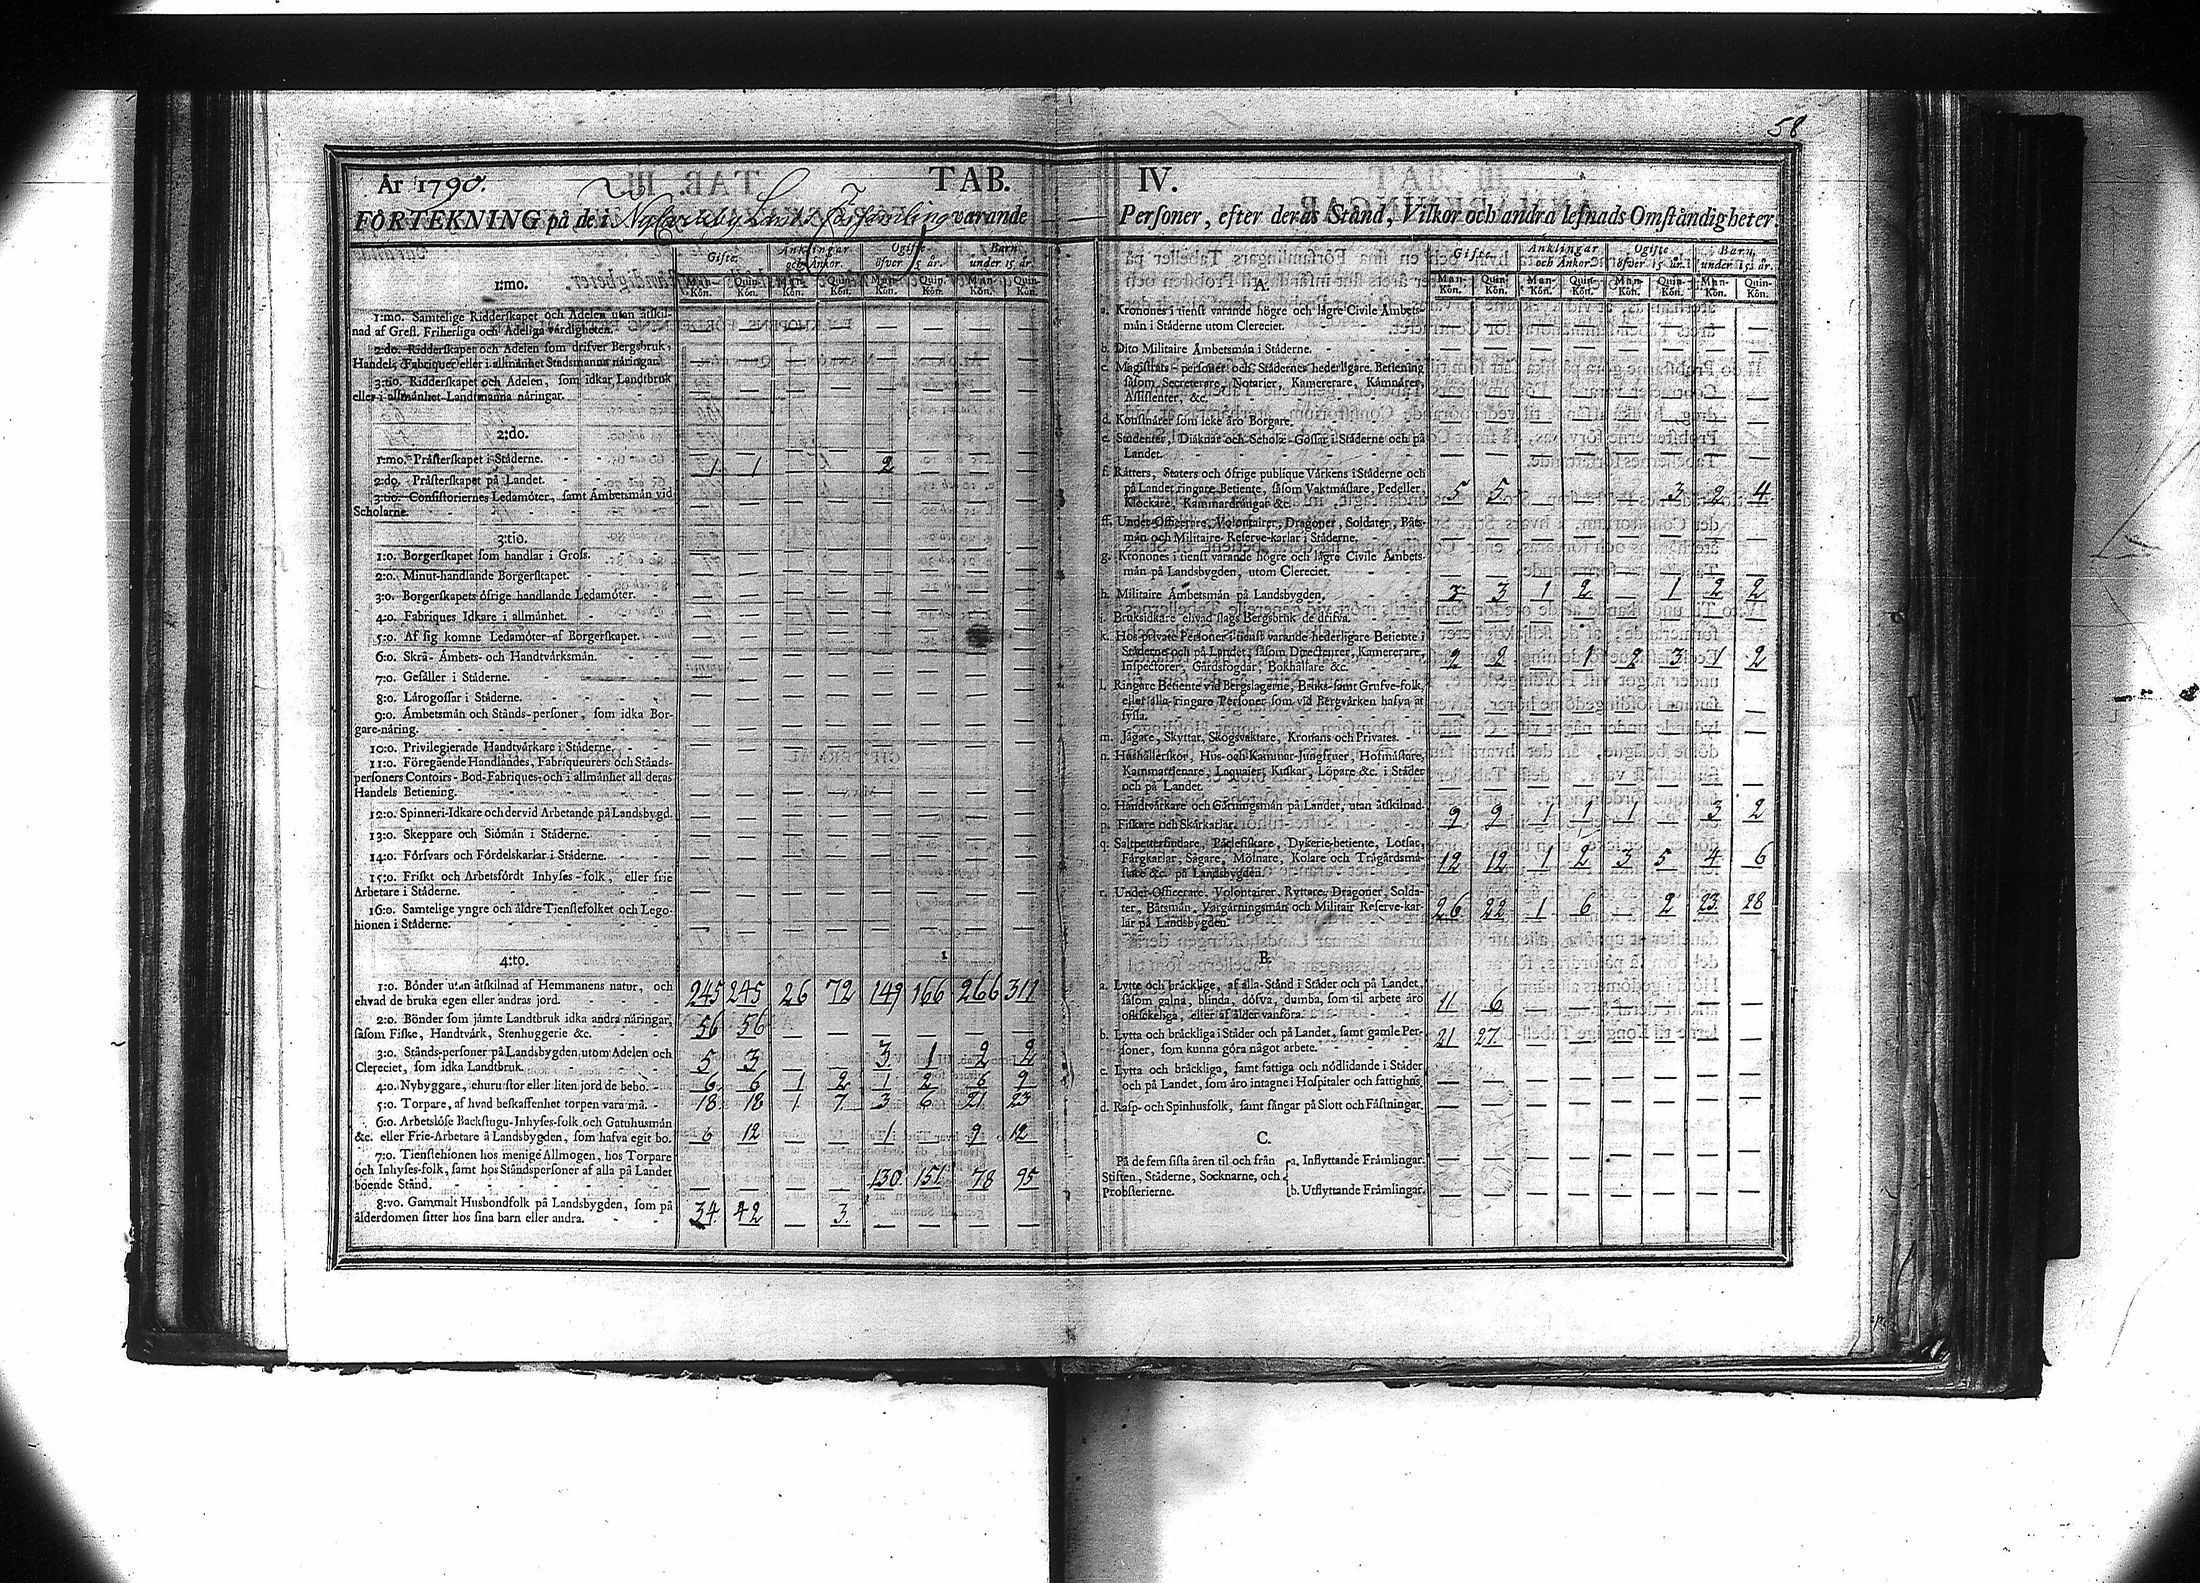 58
År 1790. TAB. IV.
FÖRTEKNING på de i Nycarleby Lands Församling varande Personer, efter deras Stånd, Vilkor och andra lefnads Omståndigheter.
Gifte. Anklingar och Ankor. Ogifte öfver 15 år. Barn under 15 år.
Man-Kön. Quin-Kön. Man-Kön. Quin-Kön. Man-Kön. Quin-Kön. Man-Kön. Quin-Kön.
1:mo.
1:mo. Samtelige Ridderskapet och Adelen utan åtskil-
nad af Grefl. Friherrliga och Adeliga vårdigheten. — — — — — — — —
2:do. Ridderskapet och Adelen som drifver Bergsbruk,
Handel, Fabriquer eller i allmånhet Stadsmanna nåringar. — — — — — — — —
3:tio. Ridderskapet och Adelen, som idkar Landtbruk
eller i allmånhet Landtmanna nåringar. — — — — — — — —
2:do.
1:mo. Pråsterskapet i Ståderne. — — — — — — — —
2:do. Pråsterskapet på Landet. 1 1 — — 2 — — —
3:tio. Consistoriernes Ledamöter, samt Åmbetsmån vid
Scholarne. — — — — — — — —
3:tio.
1:o. Borgerskapet som handlar i Gross. — — — — — — — —
2:o. Minut-handlande Borgerskapet. — — — — — — — —
3:o. Borgerskapets öfrige handlande Ledamöter. — — — — — — — —
4:o. Fabriques Idkare i allmånhet. — — — — — — — —
5:o. Af sig komne Ledamöter af Borgerskapet. — — — — — — — —
6:o. Skrå- Åmbets- och Handtvårksmån. — — — — — — — —
7:o. Gesåller i Ståderne. — — — — — — — —
8:o. Lårogossar i Ståderne. — — — — — — — —
9:o. Åmbetsmån och Stånds-personer, som idka Bor-
gare-nåring. — — — — — — — —
10:o. Privilegierade Handtvårkare i Ståderne. — — — — — — — —
11:o. Föregående Handlandes, Fabriqueurers och Stånds-
personers Contoirs- Bod- Fabriques- och i allmånhet all deras
Handels Betiening. — — — — — — — —
12:o. Spinneri-Idkare och dervid Arbetande på Landsbygd. — — — — — — — —
13:o. Skeppare och Siömån i Ståderne. — — — — — — — —
14:o. Försvars och Fördelskarlar i Ståderne. — — — — — — — —
15:o. Friskt och Arbetsfördt Inhyses-folk, eller frie
Arbetare i Ståderne. — — — — — — — —
16:o. Samtelige yngre och åldre Tienstefolket och Lego-
hionen i Ståderne. — — — — — — — —
4:to.
1:o. Bönder utan åtskilnad af Hemmanens natur, och
ehvad de bruka egen eller andras jord. 245 245 26 72 149 166 266 311
2:o. Bönder som jåmte Landtbruk idka andra nåringar,
såsom Fiske, Handtvårk, Stenhuggerie &c. 56 56
3:o. Stånds-personer på Landsbygden utom Adelen och
Clereciet, som idka Landtbruk. 5 3 3 1 2 2
4:o. Nybyggare, ehuru stor eller liten jord de bebo. 6 6 1 2 1 2 6 9
5:o. Torpare, af hvad beskaffenhet torpen vara må. 18 18 1 7 3 6 21 23
6:o. Arbetslöse Backstugu-Inhyses-folk och Gatuhusmån
&c. eller Frie-Arbetare å Landsbygden, som hafva egit bo. 6 12 — — 1 — 9 12
7:o. Tienstehionen hos menige Allmogen, hos Torpare
och Inhyses-folk, samt hos Ståndspersoner af alla på Landet
boende Stånd. — — — — 130 151 78 95
8:vo. Gammalt Husbondfolk på Landsbygden, som på
ålderdomen sitter hos sina barn eller andra. 34 42 — 3 — — — —
Gifte. Anklingar och Ankor. Ogifte öfver 15 år. Barn under 15 år.
Man-Kön. Quin-Kön. Man-Kön. Quin-Kön. Man-Kön. Quin-Kön. Man-Kön. Quin-Kön.
A.
a. Kronones i tienst varande högre och lågre Civile Åmbets-
mån i Ståderne utom Clereciet. — — — — — — — —
b. Dito Militaire Åmbetsmån i Ståderne. — — — — — — — —
c. Magistrats-personer och Stådernes hederligare Betiening
såsom Secreterare, Notarier, Kamererare, Kåmnårer,
Assistenter, &c. — — — — — — — —
d. Konstnårer som icke åro Borgare. — — — — — — — —
e. Studenter, Diåknar och Scholæ-Gossar i Ståderne och på
Landet. — — — — — — — —
f. Råtters, Staters och öfrige publique Vårkens i Ståderne och
på Landet ringare Betiente, såsom Vaktmåstare, Pedeller,
Klockare, Kammardrångar &c. 5 5 — — — 3 2 4
ff. Under-Officerare, Volontairer, Dragoner, Soldater, Båts-
mån och Militaire Reserve-karlar i Ståderne. — — — — — — — —
g. Kronones i tienst varande högre och lågre Civile Åmbets-
mån på Landsbygden, utom Clereciet. — — — — — — — —
h. Militaire Åmbetsmån på Landsbygden. 3 3 1 2 — 1 2 2
i. Bruksidkare ehvad slags Bergsbruk de drifva. — — — — — — — —
k. Hos private Personer i tienst varande hederligare Betiente i
Ståderne och på Landet, såsom Directeurer, Kamererare,
Inspectorer, Gårdsfogdar, Bokhållare &c. 2 2 — 1 2 3 1 2
l. Ringare Betiente vid Bergslagerne, Bruks- samt Grufve-folk,
eller alla ringare Personer som vid Bergvårken hafva at
syssla. — — — — — — — —
m. Jågare, Skyttar, Skogsvaktare, Kronans och Privates. — — — — — — — —
n. Hushållerskor, Hus- och Kammar-Jungfruer, Hofmåstare,
Kammartienare, Laquaier, Kuskar, Löpare &c. i Ståder
och på Landet. — — — — — — — —
o. Handtvårkare och Gårningsmån på Landet, utan åtskilnad. 9 9 1 1 1 — 3 2
p. Fiskare och Skårkarlar.
q. Saltpettersiudare, Pårlefiskare, Dykerie-betiente, Lotsar,
Fårgkarlar, Sågare, Mölnare, Kolare och Trågårdsmå-
stare &c. på Landsbygden. 12 12 1 2 3 5 4 6
r. Under-Officerare, Volontairer, Ryttare, Dragoner, Solda-
ter, Båtsmån, Vargårningsmån och Militair Reserve-kar-
lar på Landsbygden. 26 22 1 6 — 2 23 28
B.
a. Lytte och bråcklige, af alla Stånd i Ståder och på Landet,
såsom galna, blinda, döfva, dumba, som til arbete åro
oskickeliga, eller af ålder vanföra. 11 6 — — — — — —
b. Lytta och bråckliga i Ståder och på Landet, samt gamle Per-
soner, som kunna göra något arbete. 21 27 — — — — — —
c. Lytta och bråckliga, samt fattiga och nödlidande i Ståder
och på Landet, som åro intagne i Hospitaler och fattighus. — — — — — — — —
d. Rasp- och Spinhusfolk, samt fångar på Slott och Fåstningar. — — — — — — — —
C.
På de fem sista åren til och från
Stiften, Ståderne, Socknarne, och
Probsterierne.
a. Inflyttande Fråmlingar. — — — — — — — —
b. Utflyttande Fråmlingar. — — — — — — — —